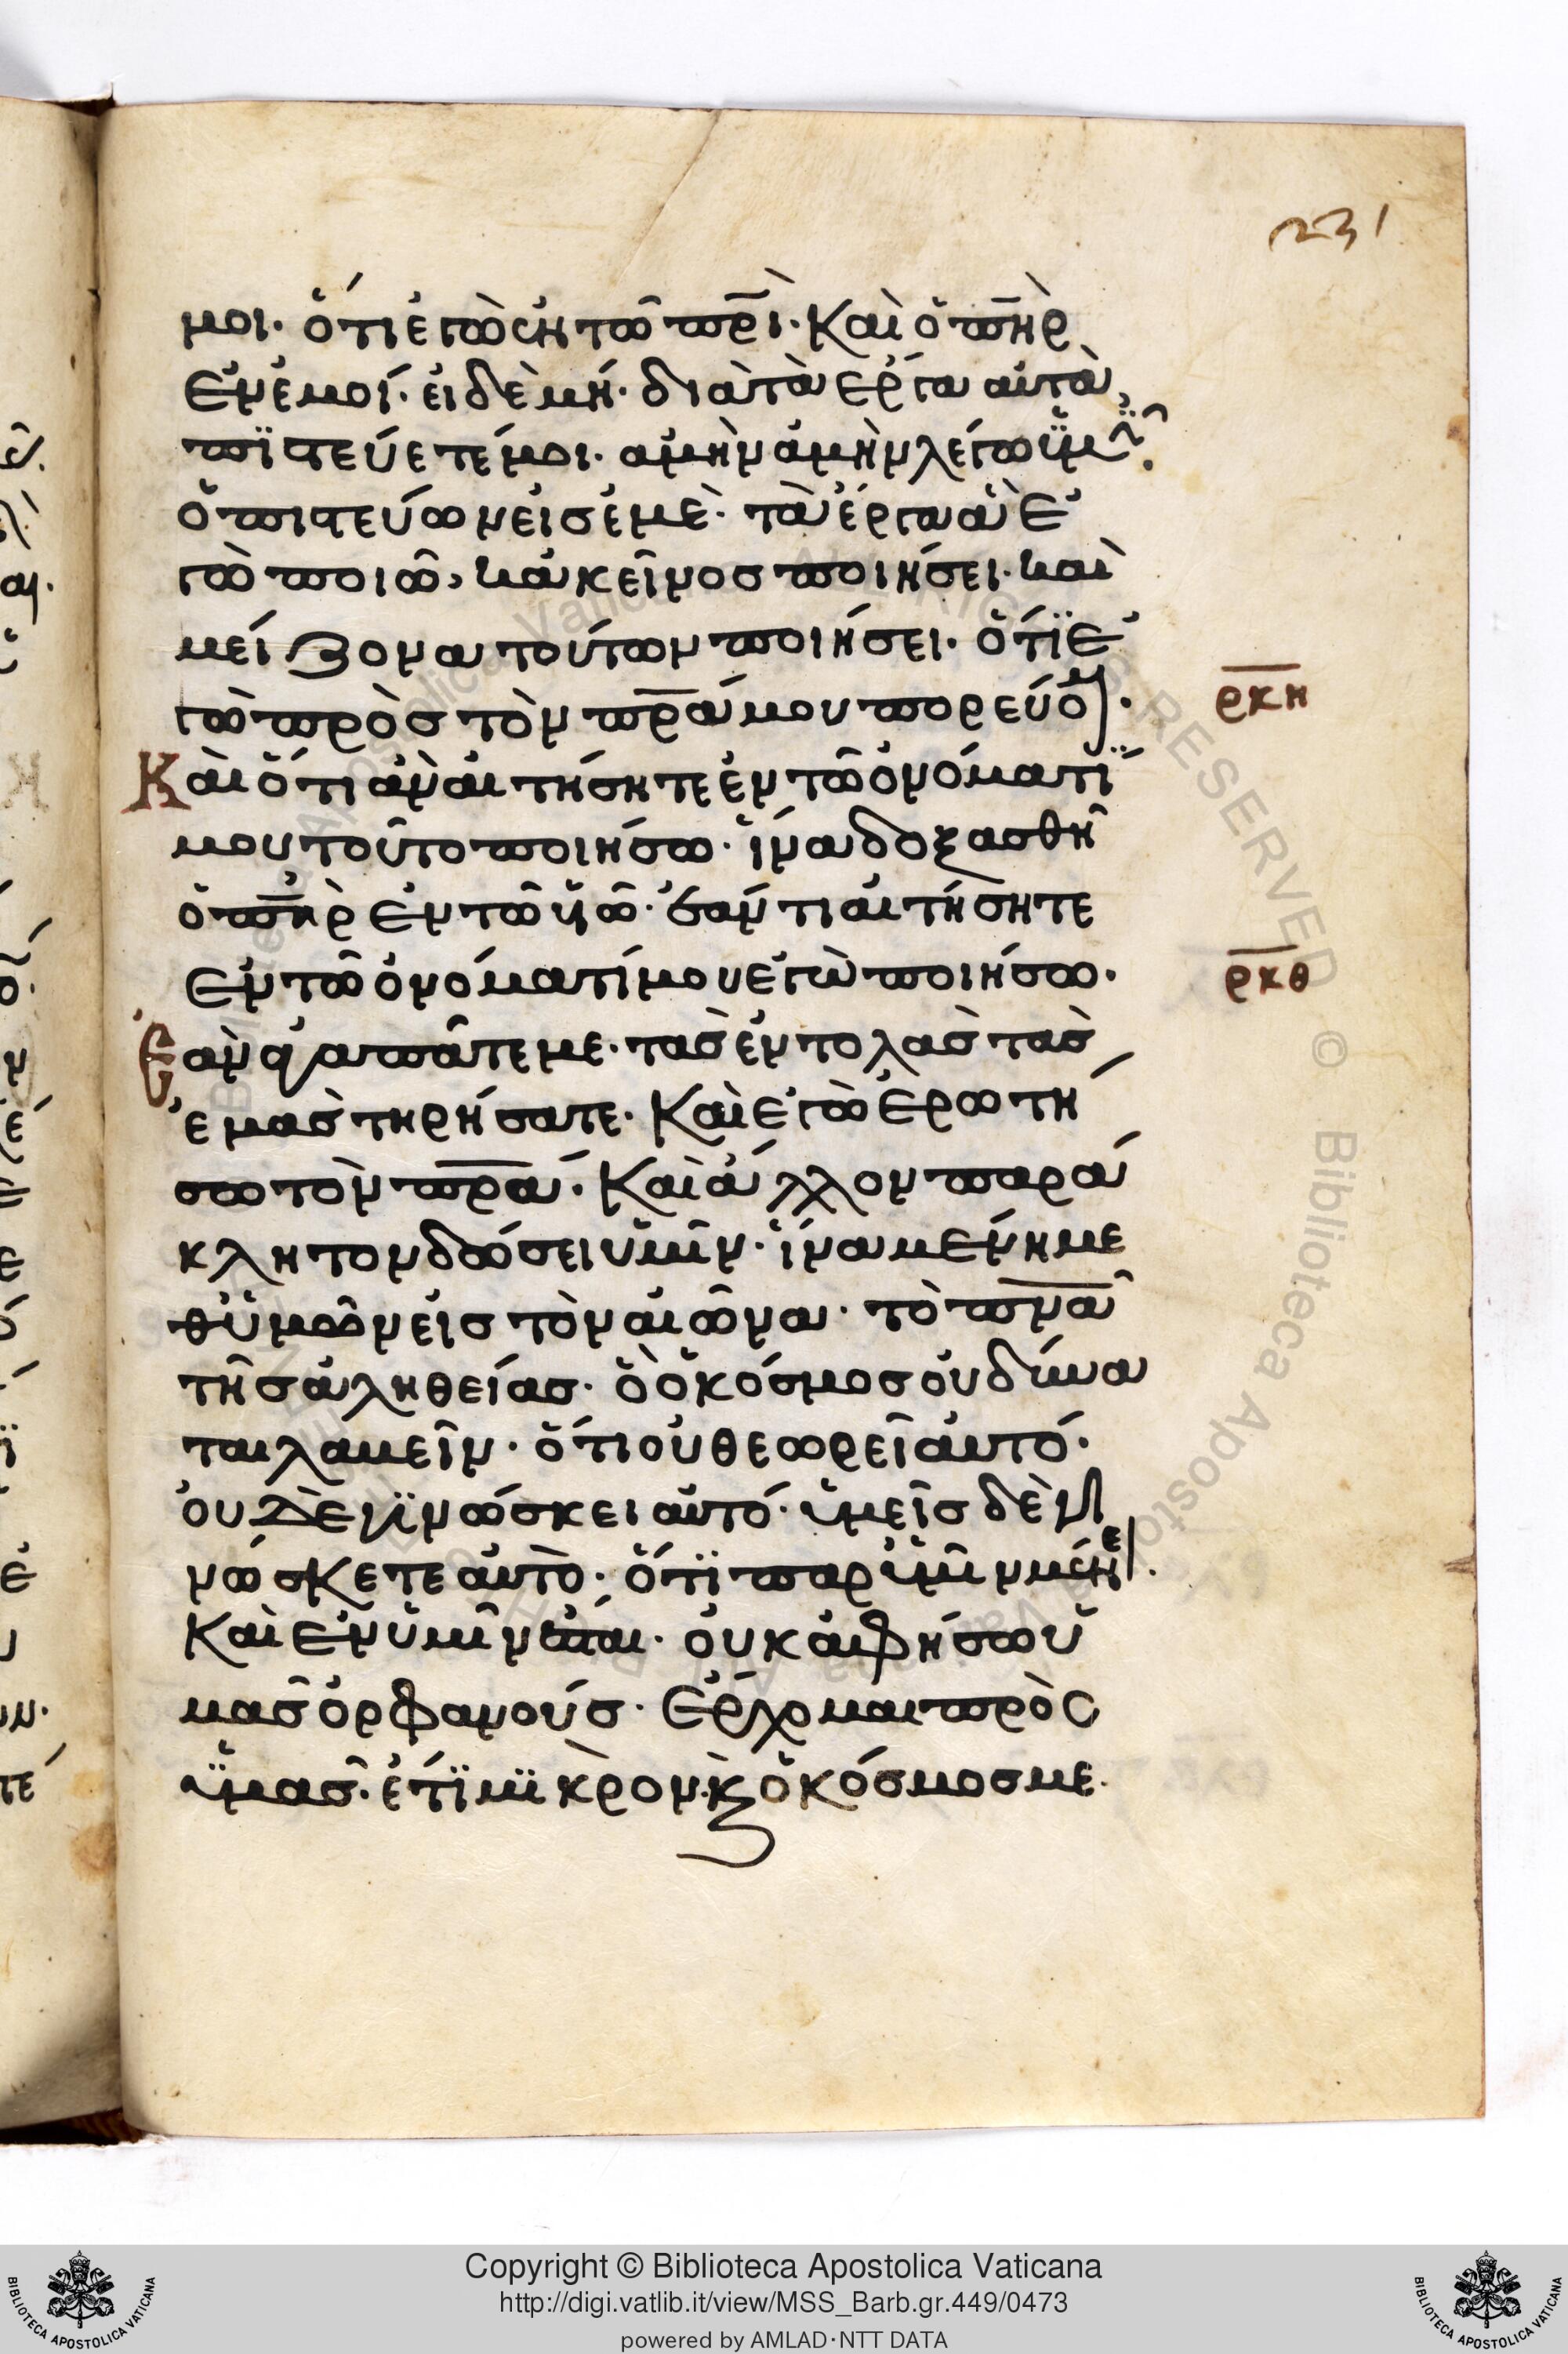 231
μοι· ὅτι ἐγὼ ἐν τῶ π̅ρ̅ι̅· Καὶ ὁ π̅η̅ρ̅
ἐν ἐμοί· εἰ δὲ μή· διὰ τὰ ἔργα αὐτὰ,
πϊστεύετέ μοι· ἀμὴν ἀμὴν λέγω ὑμῖν·
ὁ πιστεύων εἰσ ἐμὲ· τὰ ἔργα ἃ ἐ
γὼ ποιῶ, κἀκεῖνοσ ποιήσει· καὶ
μείζονα τούτων ποιήσει· ὅτϊ ἐ
γὼ πρὸσ τὸν π̅ρ̅α̅ μου πορεύομαι·
ρκη
Καὶ ὅτι ἂν αἰτήσητε ἐν τῶ ὀνόματϊ
μου τοῦτο ποιήσω· ἵνα δοξασθῆ
ὁ π̅η̅ρ̅ ἐν τῶ ὑῶ· ἐάν τι αἰτήσητε
ἐν τῶ ὀνόματί μου ἐγὼ ποιήσω·
ρκθ
Ἐὰν ἀγαπᾶτε με· τὰσ ἐντολὰσ τὰσ
ἐμὰσ τηρήσατε· Καὶ ἐγὼ ἐρωτή
σω τὸν π̅ρ̅α̅· Καὶ ἄλλον παρά
κλητον δώσει ὑμῖν· ἵνα μένη με
θ ὑμῶν εἰσ τὸν αἰῶνα· τὸ π̅ν̅α̅
τῆσ ἀληθείασ· ὃ ὁ κόσμοσ οὐ δύνα
ται λαμεῖν· ὅτι οὐ θεωρεῖ αὐτό·
οὐδὲ γϊνώσκει αὐτό· ὑμεῖσ δὲ γι
νώσκετε αὐτὸ· ὅτϊ παρ ὑμῖν μένει·
Καὶ ἐν ὑμῖν ἔσται· οὐκ ἀφήσω ὑ
μᾶσ ὀρφανούσ· Ἔρχομαι πρὸς
ὑμᾶσ· ἔτϊ μϊκρὸν κ̀ ὁ κόσμοσ με·
Copyright © Biblioteca Apostolica Vaticana
http://digi.vatlib.it/view/MSS_Barb.gr.449/0473
powered by AMLAD·NTT DATA
BIBLIOTECA APOSTOLICA VATICANA
BIBLIOTECA APOSTOLICA VATICANA